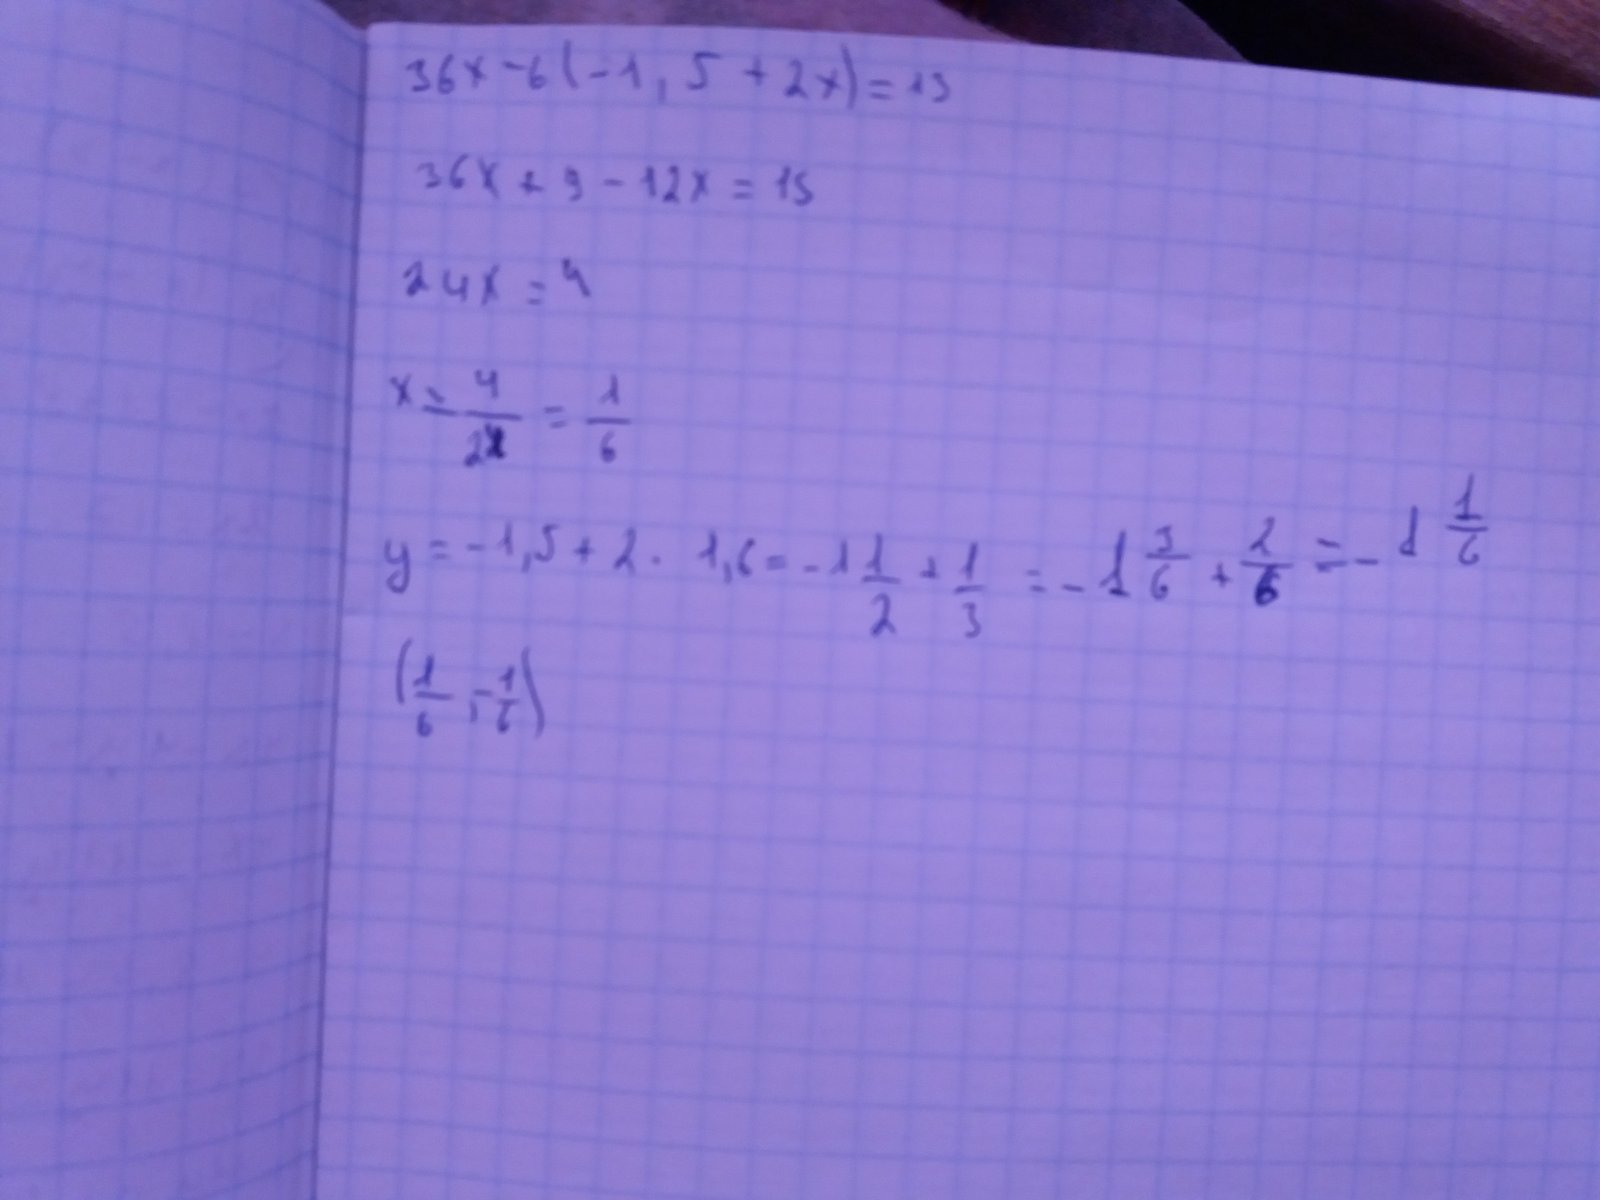 36x - 6(-1,5 + 2x) = 13
36x + 9 - 12x = 13
24x = 4
x = 4/24 = 1/6
y = -1,5 + 2 · 1,6 = -1 1/2 + 1/3 = -1 3/6 + 2/6 = -1 1/6
(1/6 ; -1/6)